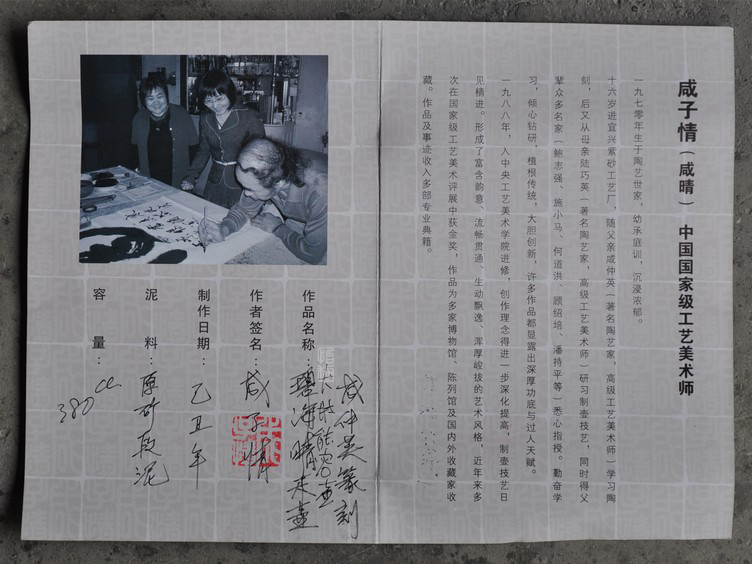 咸子情（咸晴） 中国国家级工艺美术师
一九七零年生于陶艺世家，幼承庭训，沉浸浓郁。
十六岁进宜兴紫砂工艺厂，随父亲咸仲英（著名陶艺家，高级工艺美术师）学习陶
刻，后又从母亲陆巧英（著名陶艺家，高级工艺美术师）研习制壶技艺，同时得父
辈众多名家（鲍志强、施小马、何道洪、顾绍培、潘持平等）悉心指授。勤奋学
习，倾心钻研，植根传统，大胆创新，许多作品都显露出深厚功底与过人天赋。
一九八八年，入中央工艺美术学院进修，创作理念得进一步深化提高，制壶技艺日
见精进。形成了富含韵意、流畅贯通、生动飘逸、浑厚峻拔的艺术风格，近年来多
次在国家级工艺美术评展中获金奖，作品为多家博物馆、陈列馆及国内外收藏家收
藏。作品及事迹收入多部专业典籍。
咸仲英篆刻
作品名称：碧海晴天壶
作者签名：咸子情
制作日期：乙丑年
泥 料：原矿段泥
容 量：380cc